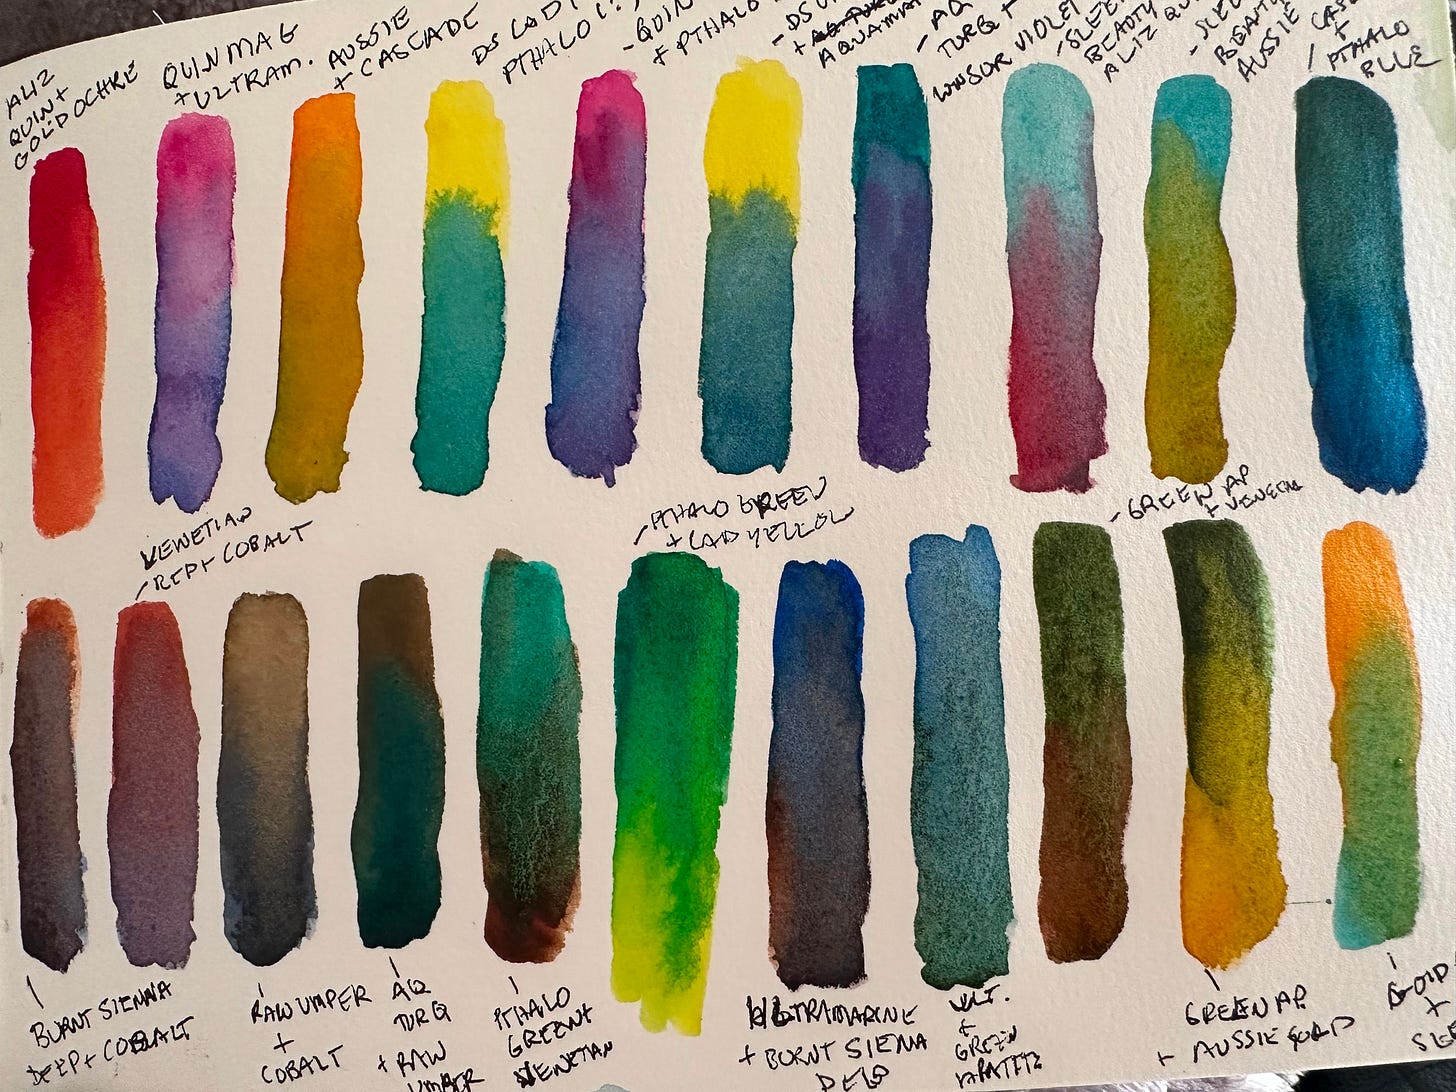 ALIZ
QUIN +
GOLD OCHRE
QUIN MAG
+ ULTRAM.
AUSSIE
+ CASCADE
DS CAD
PTHALO
- QUIN
+ PTHALO
- DS
+
AQUAMA
- AQ
TURQ +
WINSOR VIOLET
- SLEE
BEAUTY
ALIZ QU
- SLEE
BEAUT
AUSSIE
CAS
+
PTHALO
BLUE
VENETIAN
- RED + COBALT
- PTHALO GREEN
+ CAD YELLOW
- GREEN AP
+ VENETIA
BURNT SIENNA
DEEP + COBALT
RAW UMPER
+
COBALT
AQ
TURQ
+ RAW
UMBER
PTHALO
GREEN +
VENETIAN
ULTRAMARINE
+ BURNT SIENA
ULT.
+
GREEN
APATITE
GREEN AP.
+ AUSSIE GOLD
GOLD
+
SLE